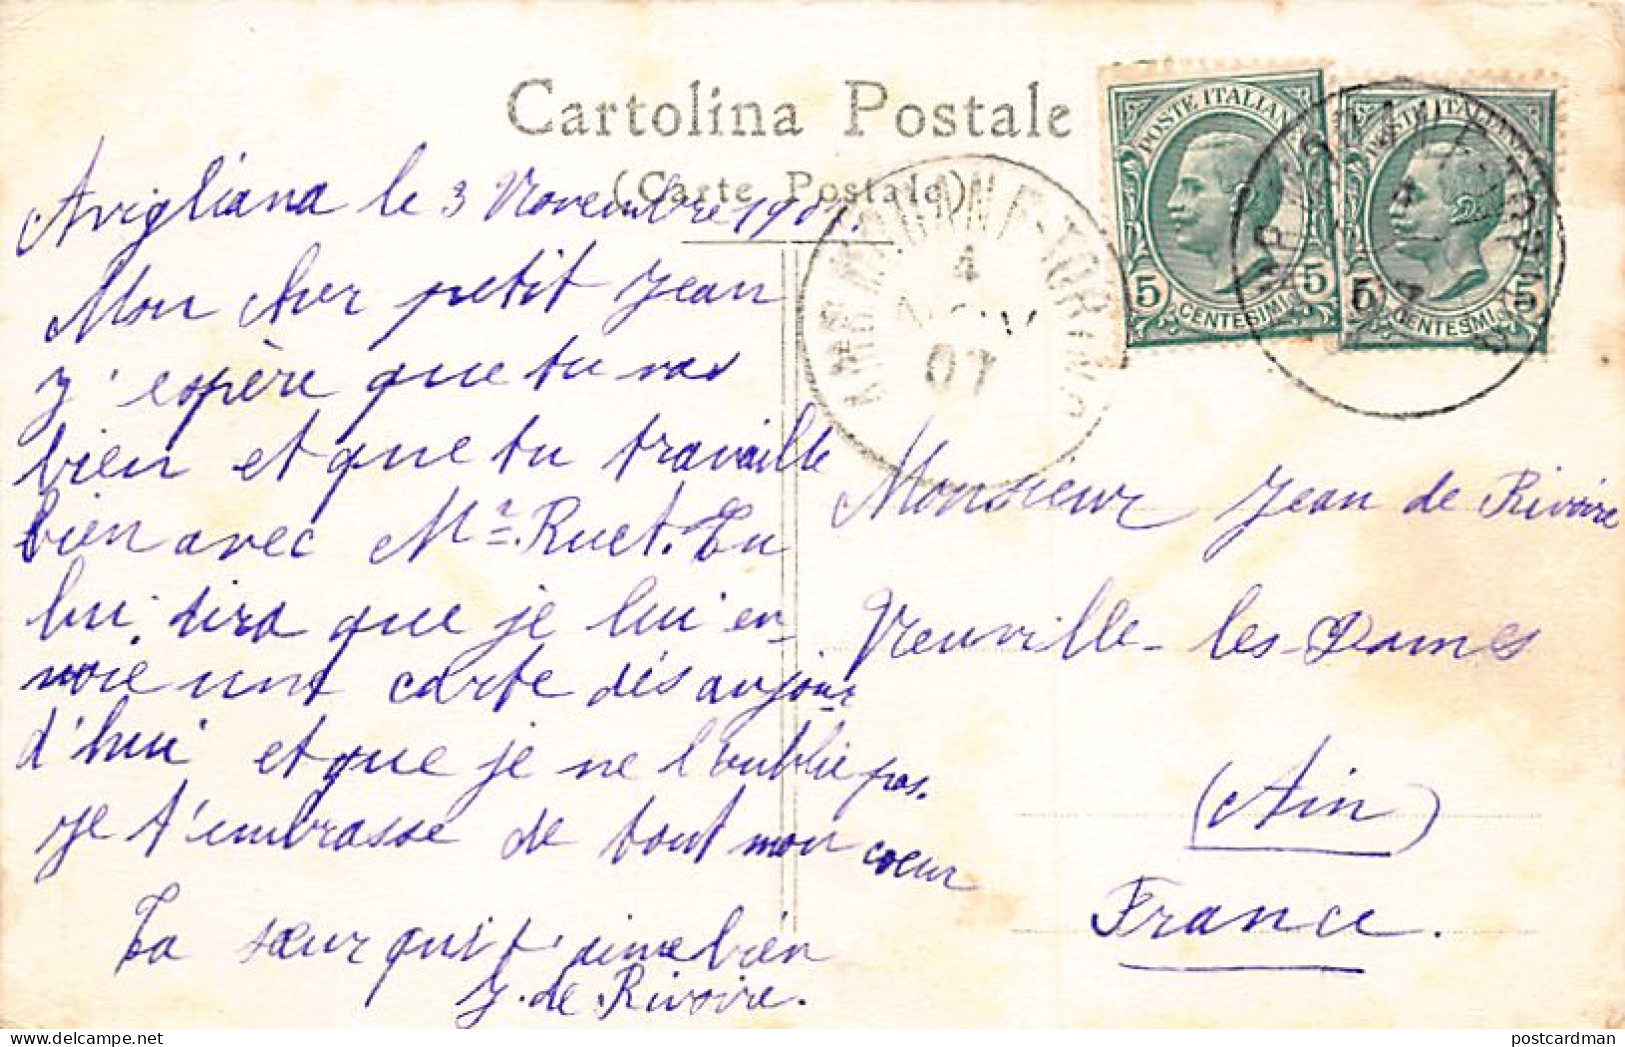 Cartolina Postale
(Carte Postale)
Avigliana le 3 Novembre 1907.
Mon cher petit Jean
J'espère que tu vas
bien et que tu travaille
bien avec Mr. Ruet. Tu
lui dira que je lui en-
voie une carte dès aujour
d'hui et que je ne l'oublie pas.
Je t'embrasse de tout mon coeur
Ta sœur qui t'aime bien
J. de Rivoire.
POSTE ITALIANE
5 CENTESIMI 5
POSTE ITALIANE
5 CENTESIMI 5
4
NOV
07
Monsieur Jean de Rivoire
Neuville-les-Dames
(Ain)
France.
postcardman